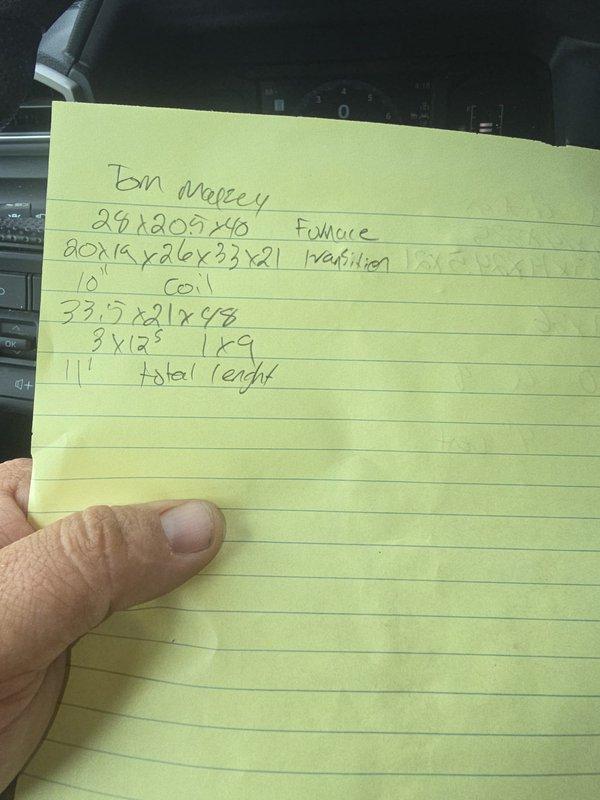 Tom
28 x 20.5 x 40 Furnace
20 x 19 x 26 x 33 x 21 transition
10" coil
33.5 x 21 x 48
3 x 12s 1 x 9
11' total lenght
OK
3 4 5 6
0